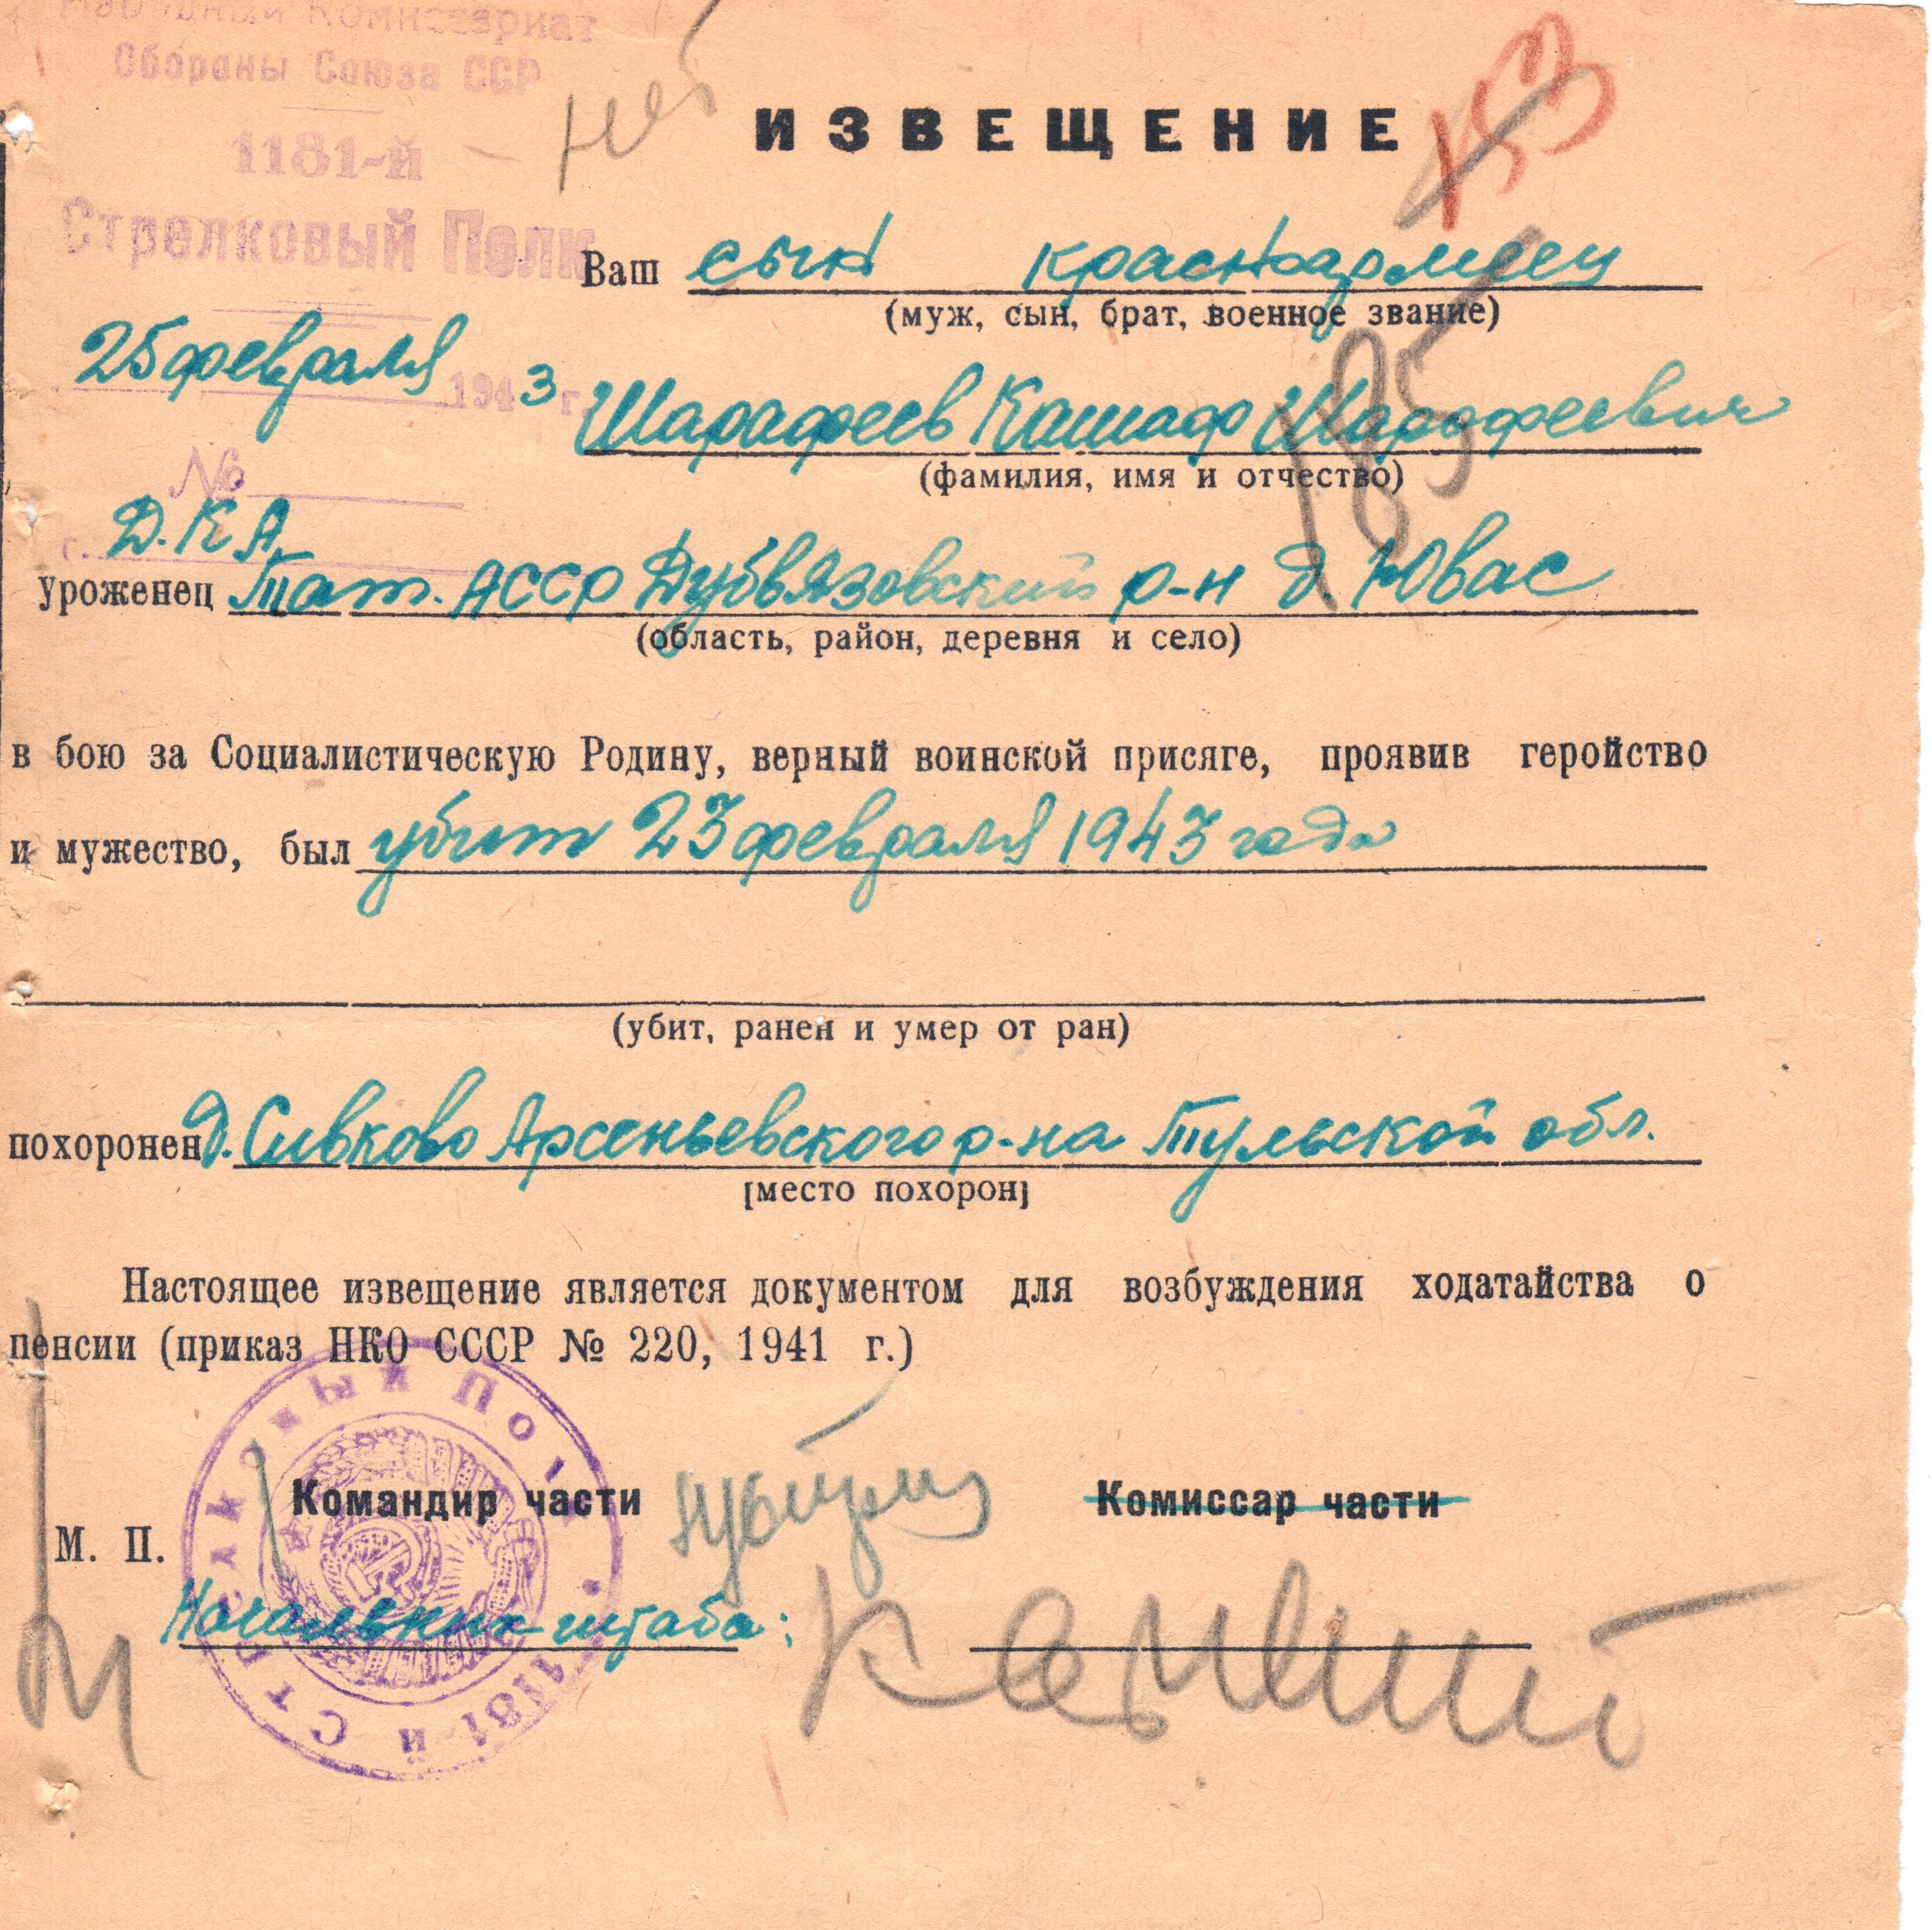 Народный Комиссариат
Обороны Союза ССР
1181-й
Стрелковый Полк
25 февраля 1943 г.
№
г. Д.К.А.
нет
ИЗВЕЩЕНИЕ
153
185
Ваш сын красноармеец
(муж, сын, брат, военное звание)
Шарафеев Кашаф Шарафеевич
(фамилия, имя и отчество)
уроженец Тат. АССР Дубвязовский р-н д. Ювас
(область, район, деревня и село)
в бою за Социалистическую Родину, верный воинской присяге, проявив геройство
и мужество, был убит 23 февраля 1943 года
(убит, ранен и умер от ран)
похоронен д. Сивково Арсеньевского р-на Тульской обл.
[место похорон]
Настоящее извещение является документом для возбуждения ходатайства о
пенсии (приказ НКО СССР № 220, 1941 г.)
Командир части
Комиссар части
М. П.
Начальник штаба:
1181-й Стрелковый Полк